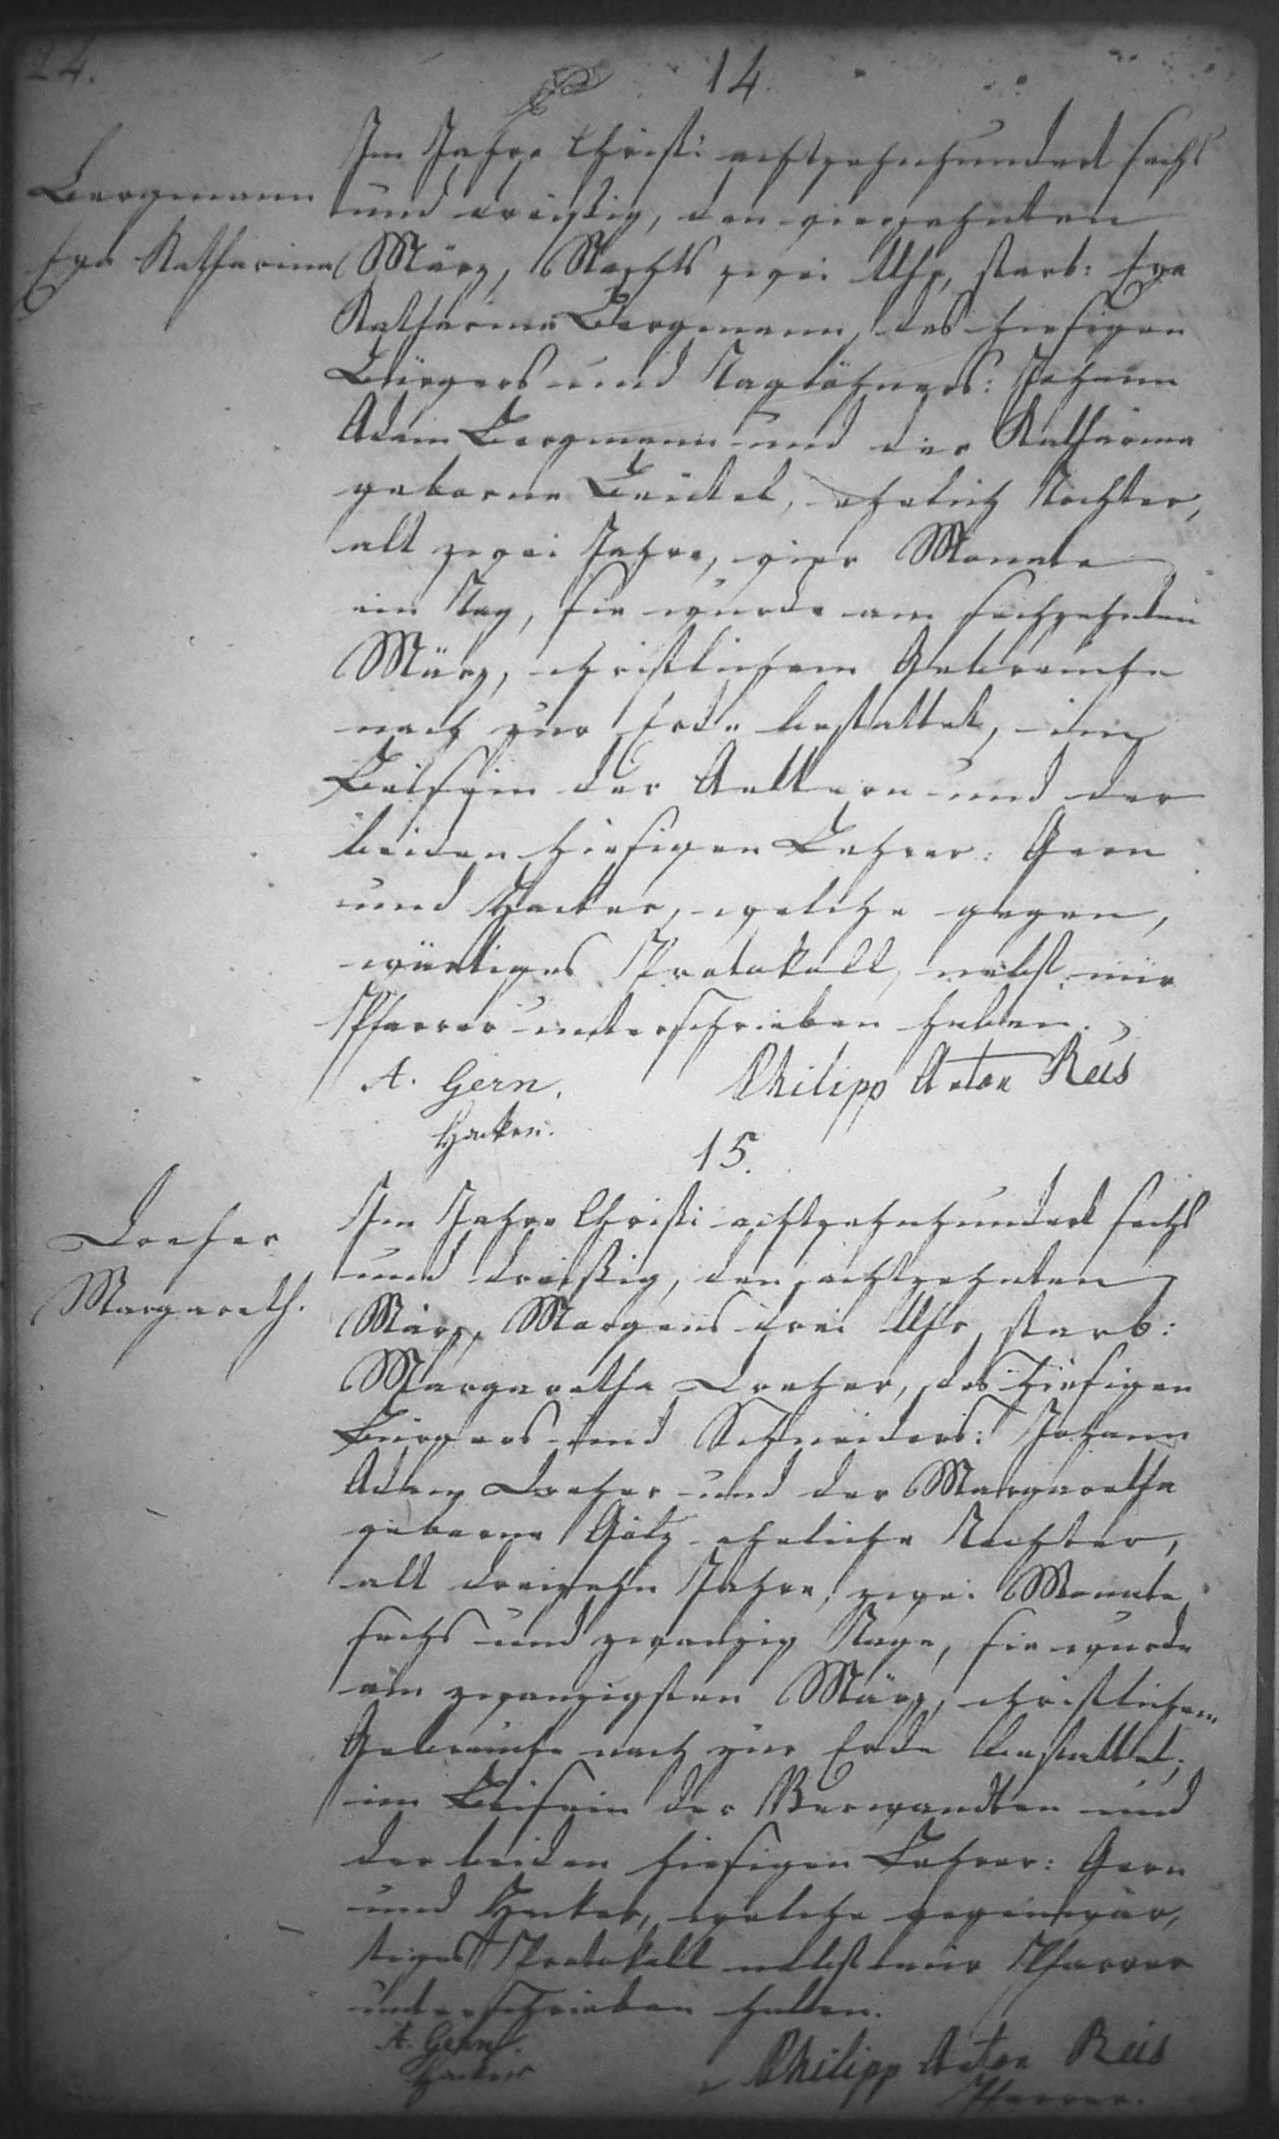 24.
14.
Im Jahre Christi achtzehnhundert sechs
Bergmann
und dreißig, den vierzehnten
Eva Katharina
März, Nachts zwei Uhr, starb: Eva
Katharina Bergmann, des hiesigen
Bürgers und Taglöhners: Johann
Adam Bergmann und der Katharina
geborne Beickel, ehelich Tochter,
alt zwei Jahre, vier Monate
ein Tag, sie wurde am sechzehnten
März, christlichem Gebrauche
nach zur Erde bestattet, im
Beisein der Aeltern und der
beiden hiesigen Lehrer: Gern
und Hacker, welche gegen,
wärtiges Protokoll, nebst mir
Pfarrer unterschrieben haben.
A. Gern.
Philipp Anton Reis
Hacker.
15.
Im Jahre Christi achtzehnhundert sechs
Dreher
und dreißig, den achtzehnten
Margareth.
März, Morgens drei Uhr, starb:
Margaretha Dreher, des hiesigen
Bürgers und Schneiders: Johann
Adam Dreher und der Margaretha
geborne Götz eheliche Tochter,
alt dreizehn Jahre, zwei Monate
sechs und zwanzig Tage, sie wurde
am zwanzigsten März, christlichem
Gebrauche nach zur Erde bestattet,
im Beisein der Verwandten und
der beiden hiesigen Lehrer: Gern
und Hacker, welche gegenwär,
tiges Protokoll nebst mir Pfarrer
unterschrieben haben.
A. Gern.
Philipp Anton Reis
Hacker
Pfarrer.